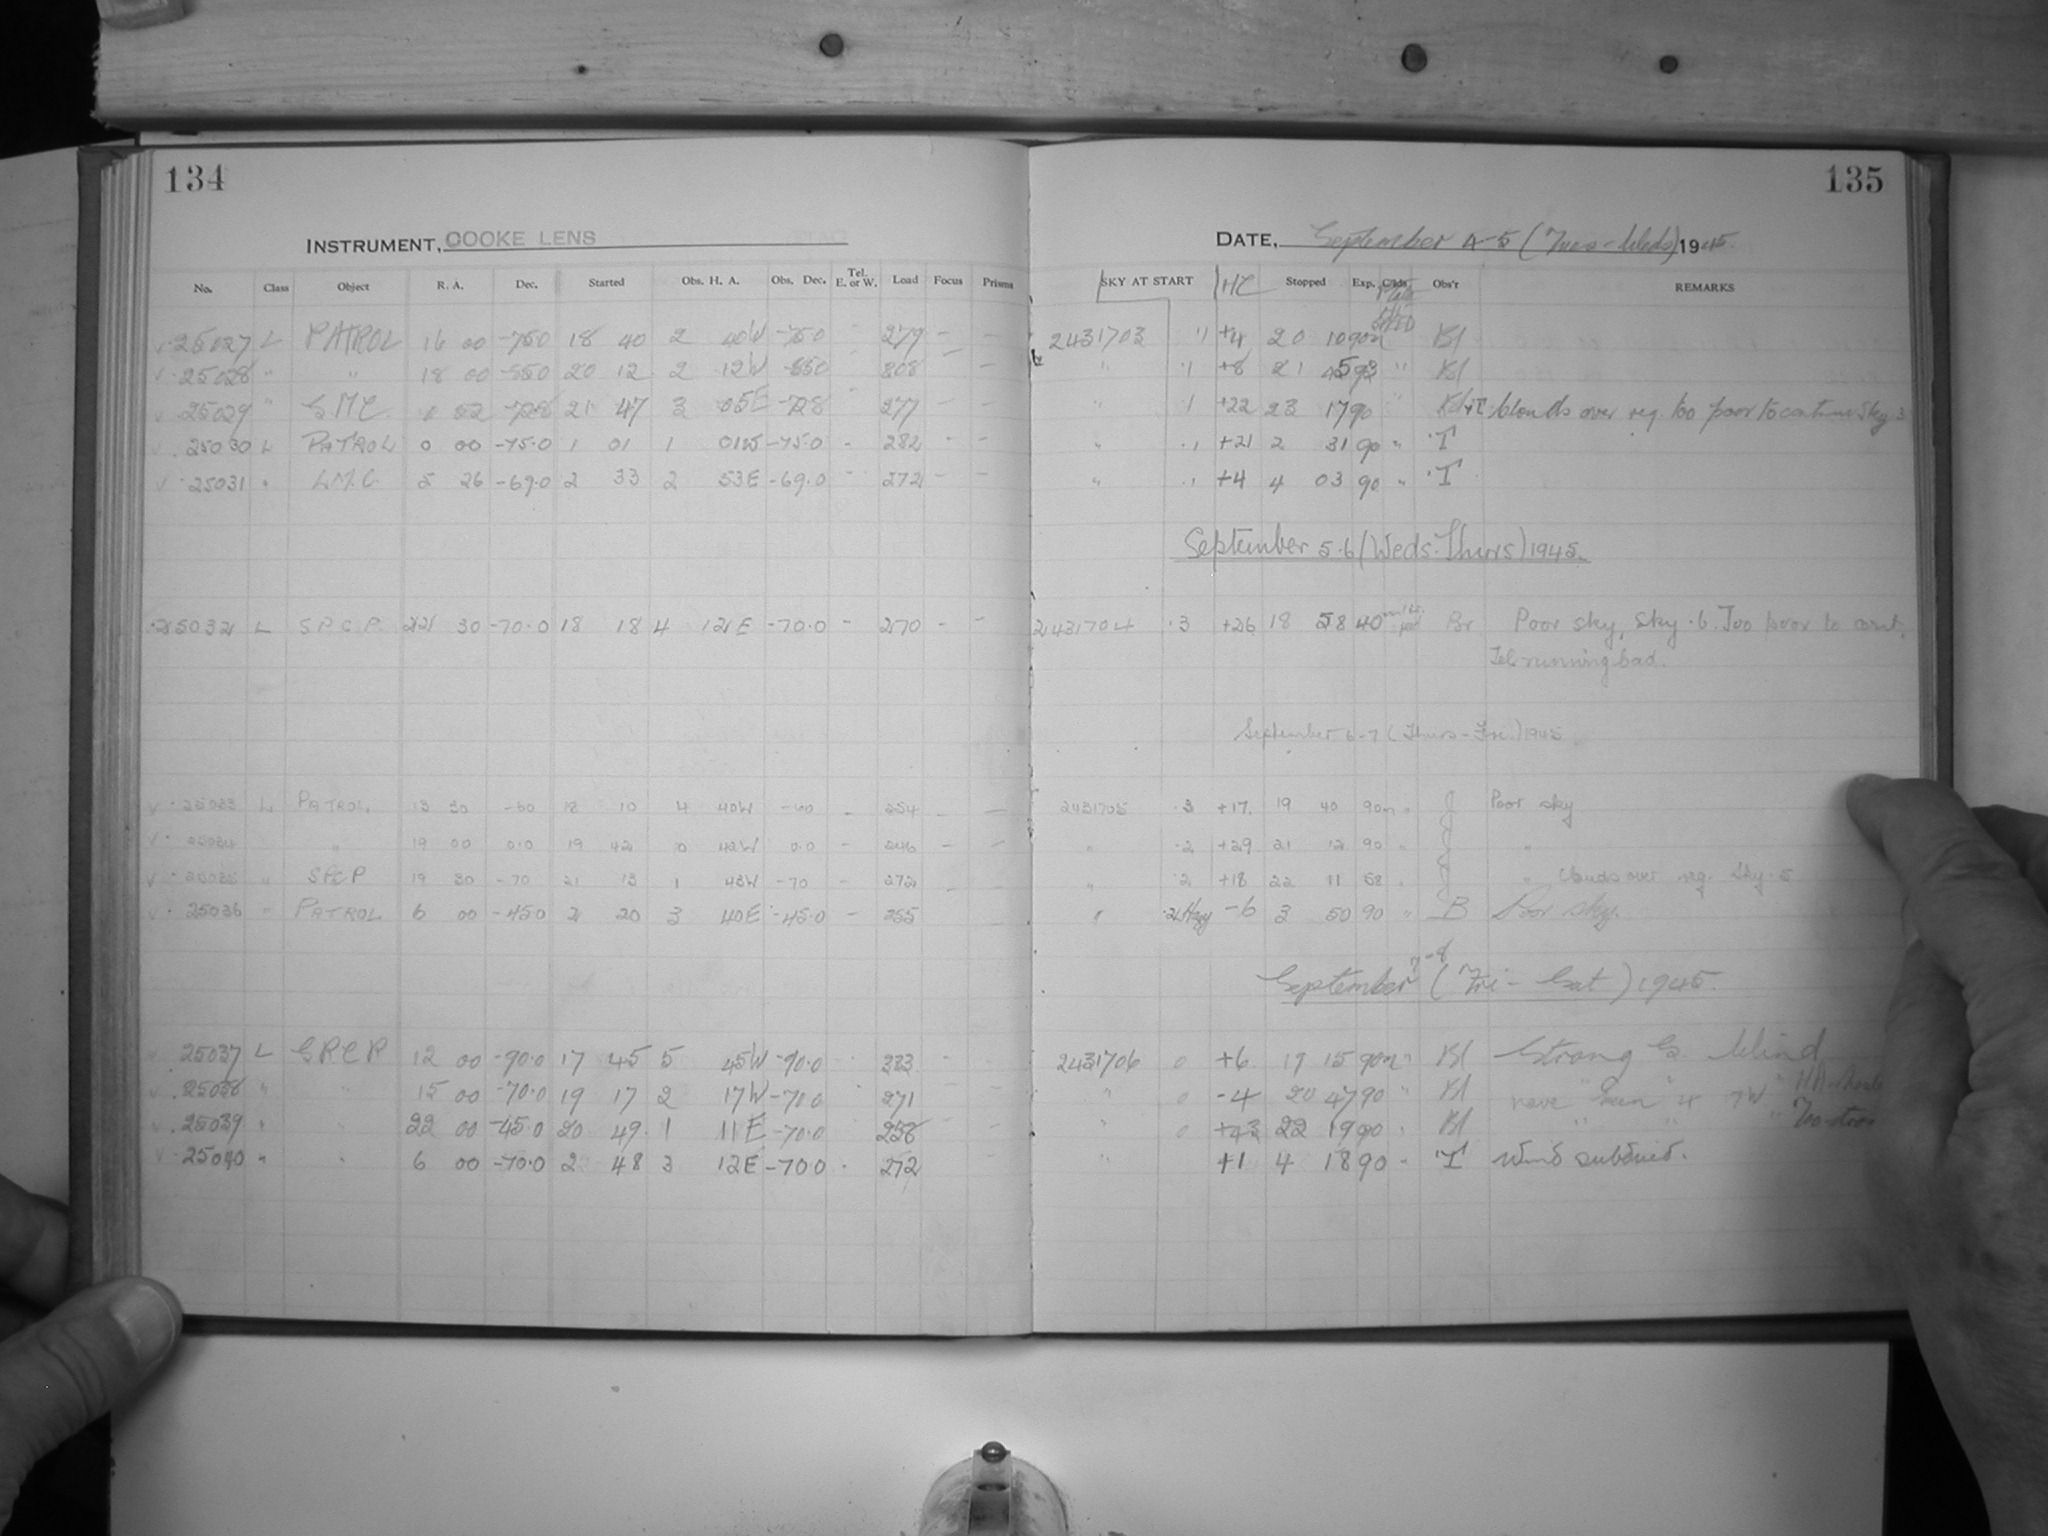 134
135
INSTRUMENT, COOKE LENS
DATE, September 4-5 (Tues-Weds) 1945.
No. Class Object R. A. Dec. Started Obs. H. A. Obs. Dec. Tel. E. or W. Load Focus Prisms SKY AT START HC Stopped Exp. Obs'r REMARKS
25027 L PATROL 16 00 -75.0 18 40 2 40W -75.0 - 279 - - 2431703 +4 20 10 90m Bl
25028 " " 18 00 20 12 2 12W - - - " .1 +8 21 " Bl
25029 " S.M.C. 21 47 3 05E -72.8 - 277 - - " .1 +22 23 17 90 " clouds over reg. too poor to continue Sky .3
25030 L PATROL 0 00 -75.0 1 01 1 01W -75.0 - 282 - - " .1 +21 2 31 90 " T
25031 " L.M.C. 5 26 -69.0 2 33 2 53E -69.0 - 272 - - " .1 +4 4 03 90 " T
September 5-6 (Weds-Thurs) 1945.
25032 L S.P.C.P. 22 30 -70.0 18 18 4 12E -70.0 - 270 - - 2431704 .3 +26 18 58 40 Br Poor sky, Sky .6. Too poor to cont.
Tel. running bad.
September 6-7 (Thurs-Fri.) 1945
25033 L PATROL 13 30 -60 18 10 4 40W -60 - 254 - - 2431705 .3 +17 19 40 90m " J Poor sky
25034 " 19 00 0.0 19 42 0 42W 0.0 - 246 - - " .2 +29 21 12 90 " J "
25035 " SPCP 19 30 -70 21 13 1 43W -70 - 272 - - " .2 +18 22 11 58 " J " Clouds over reg. Sky .5
25036 " PATROL 6 00 -45.0 2 20 3 40E -45.0 - 255 - " .2 Hazy -6 3 50 90 " B Poor sky.
September 7-8 (Fri - Sat) 1945.
25037 L S.P.C.P. 12 00 -90.0 17 45 5 45W -90.0 - 283 - - 2431706 0 +6 19 15 90m " Bl Strong S. Wind
25038 " " 15 00 -70.0 19 17 2 17W -70.0 271 - - " 0 -4 20 47 90 " Bl " HA should have been 4 7W
25039 " " 22 00 -45.0 20 49 1 11E -70.0 258 - - " 0 22 19 90 " Bl " " "
25040 " " 6 00 -70.0 2 48 3 12E -70.0 - 272 - - " +1 4 18 90 " T Wind subdued.